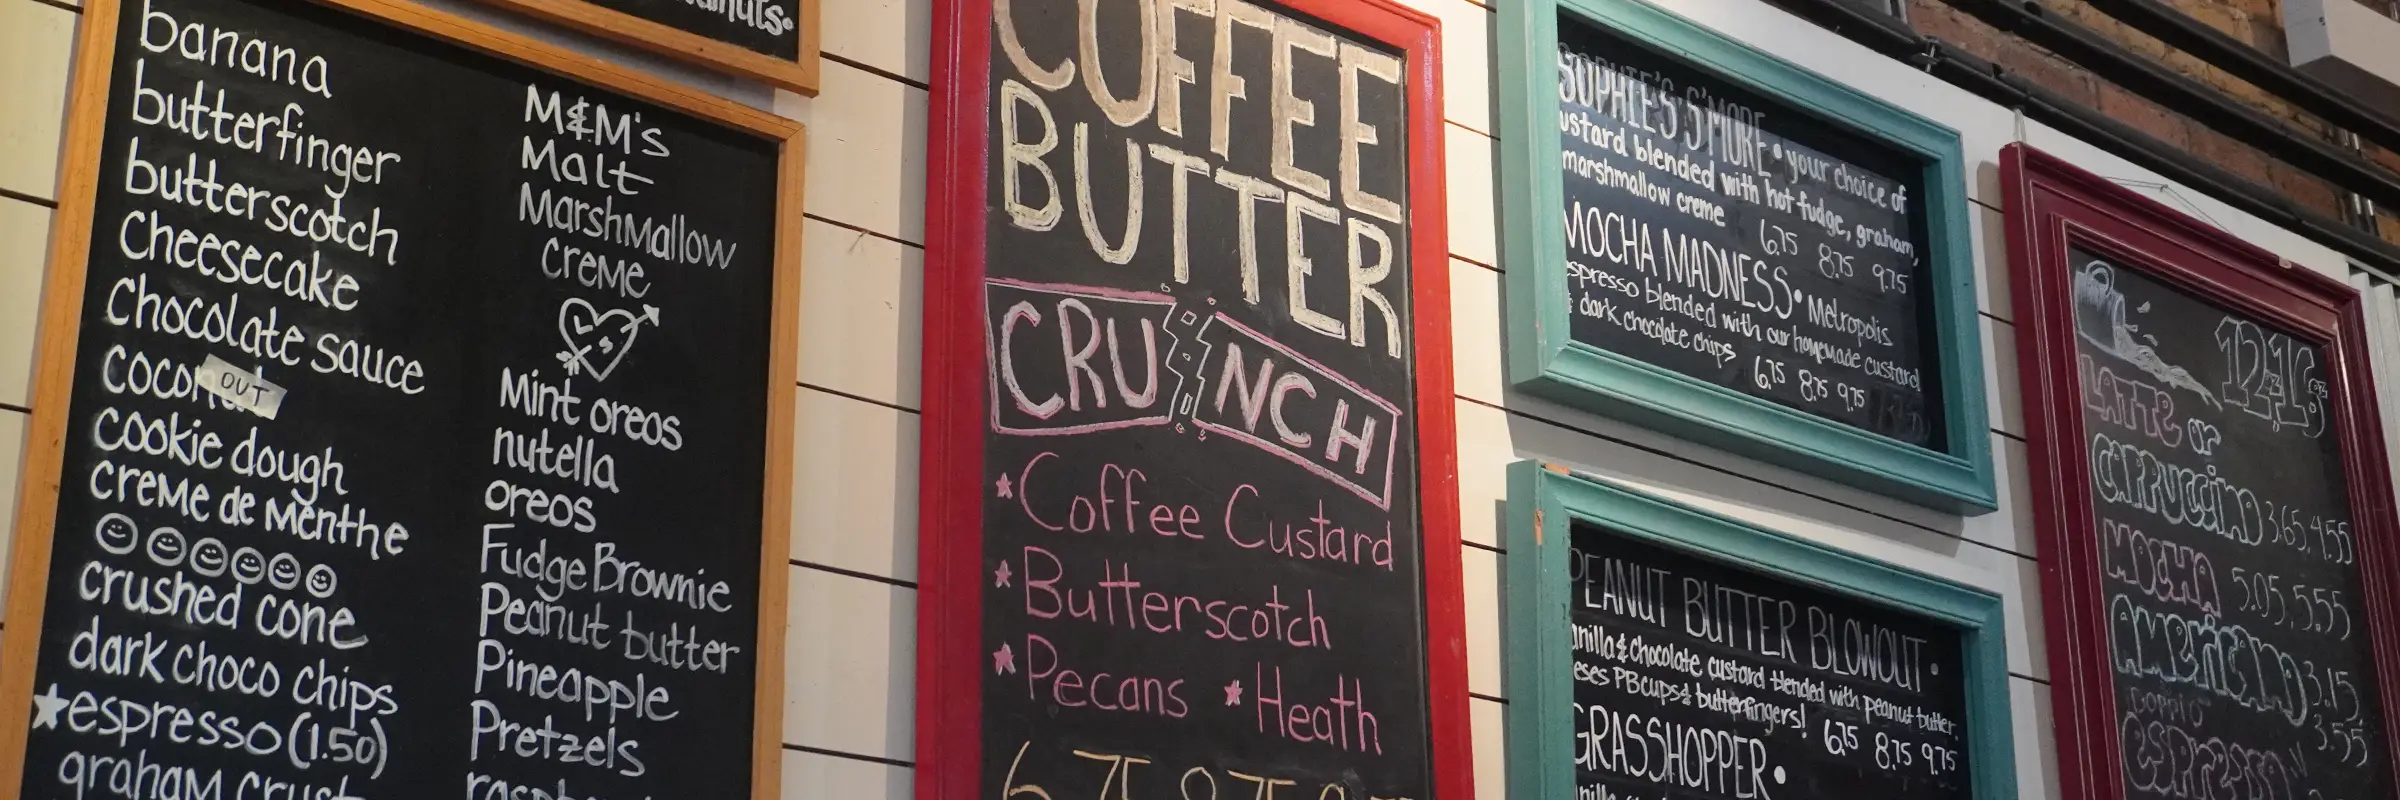 banana
butterfinger
butterscotch
Cheesecake
Chocolate sauce
OUT
cookie dough
creMe de Menthe
crushed cone
dark choco chips
espresso (1.50)
graham crust
M&M's
Malt
MarshMallow
creMe
Mint oreos
nutella
oreos
Fudge Brownie
Peanut butter
Pineapple
Pretzels
COFFEE
BUTTER
CRUNCH
Coffee Custard
Butterscotch
Pecans
Heath
6.75 8.75
SOPHIE'S S'MORE • your choice of
ustard blended with hot fudge, graham,
marshmallow creme 6.75 8.75 9.75
MOCHA MADNESS • Metropolis
espresso blended with our homemade custard
dark chocolate chips 6.75 8.75 9.75
PEANUT BUTTER BLOWOUT •
anilla & chocolate custard blended with peanut butter,
eses PB cups & butterfingers! 6.75 8.75 9.75
GRASSHOPPER •
12oz 16oz
LATTE or
CAPPUCCINO 3.65 4.55
MOCHA 5.05 5.55
AMERICANO 3.15
DOPPIO 3.55
espresso